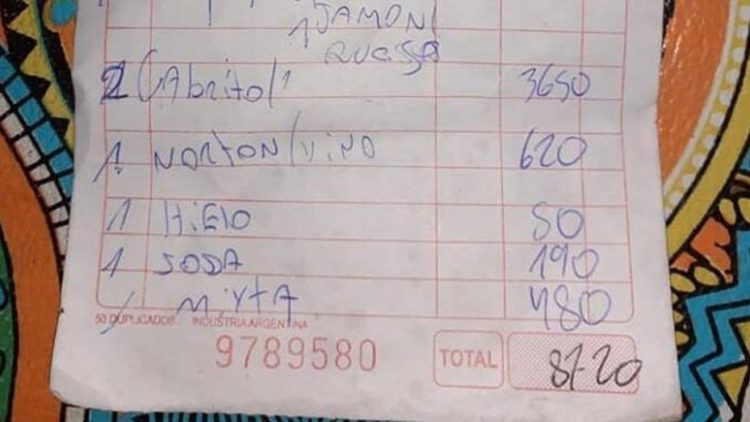 1 JAMON/
QUESSO
2 CAbrito/1 3650
1. NORTON/VINO 620
1 HiElo 50
1 SODA 190
/ MixtA 480
50 DUPLICADOS INDUSTRIA ARGENTINA
9789580 TOTAL 8720